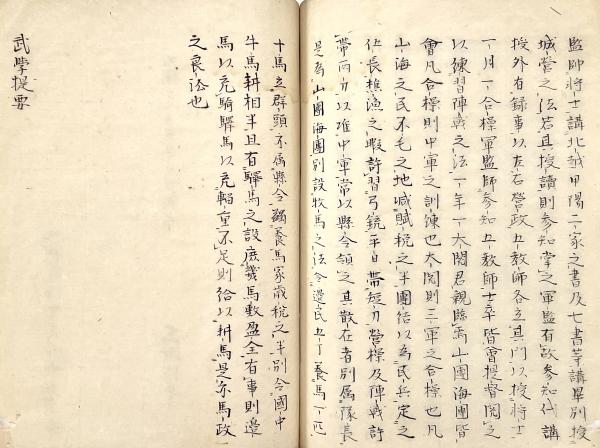 監師將士講北越甲陽二家之書及七書等講畢別授
城營之法若其授讀則參知掌之軍監有故參知代講
授外有錄事以左右營政五教師各立其門以授將士
一月一合操軍監師參知五教師士卒皆會提督閱之
以練習陣戰之法一年一大閱君親臨焉山團海團皆
會凡合操則中軍之訓練也大閱則三軍之合操也凡
山海之民不毛之地減賦稅之半團結以為民兵定之
什長樵漁之暇許習弓銃平日帶短刀營操及陣戰許
帶兩刀以准中軍常以縣令領之其散在者別屬隊長
是為山團海團別設牧馬之法令邊民五丁養馬一匹
十馬立群頭亦屬縣令蠲養馬家歲稅之半別令國中
牛馬耕相半且有驛馬之設庶幾馬數盈全有事則邊
馬以充騎驛馬以充輜重不足則給以耕馬是亦馬政
之良法也
武學提要